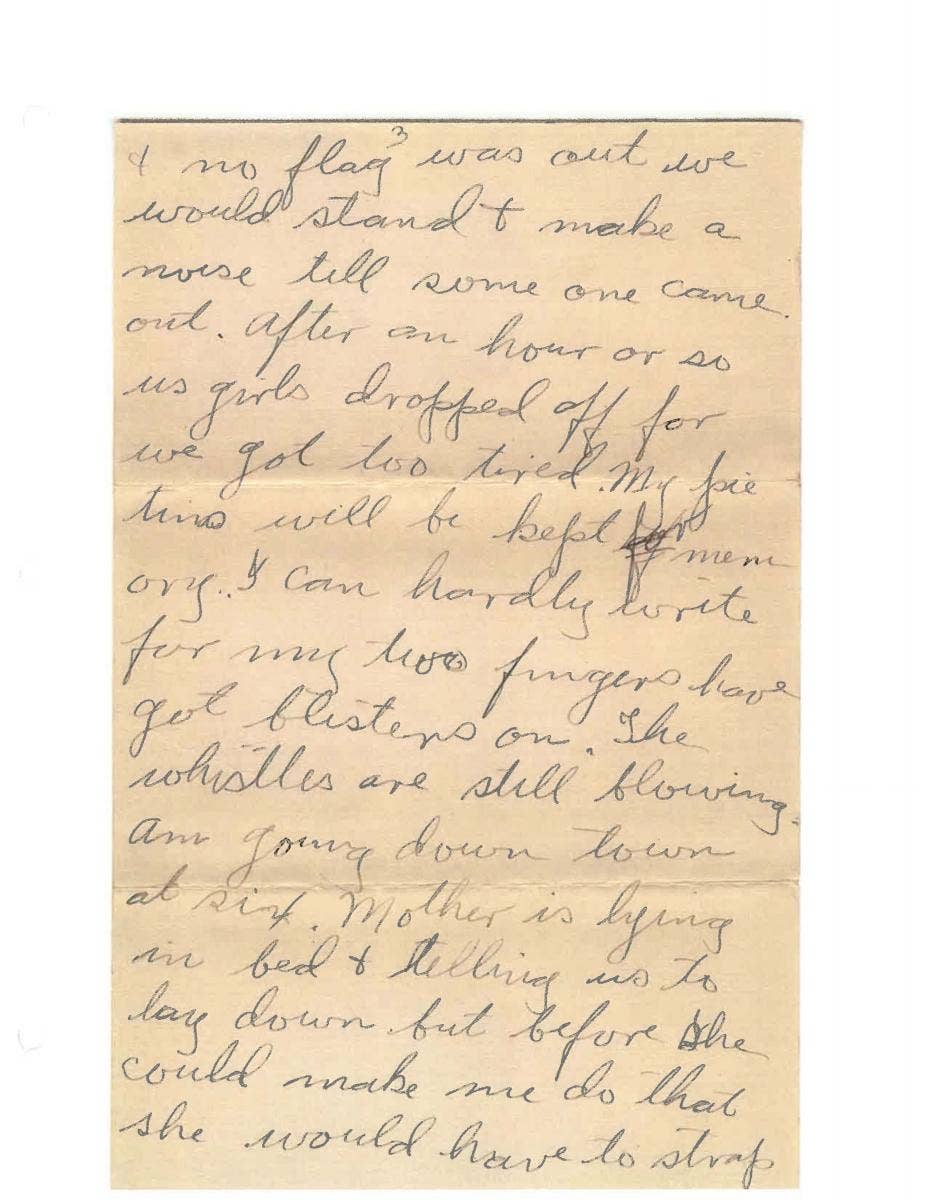 3
& no flag was out we
would stand & make a
noise till some one came.
out. After an hour or so
us girls dropped off for
we got too tired. My pie
tins will be kept for mem
ory. I can hardly write
for my two fingers have
got blisters on. The
whistles are still blowing.
Am going down town
at six. Mother is lying
in bed & telling us to
lay down but before she
could make me do that
she would have to strap